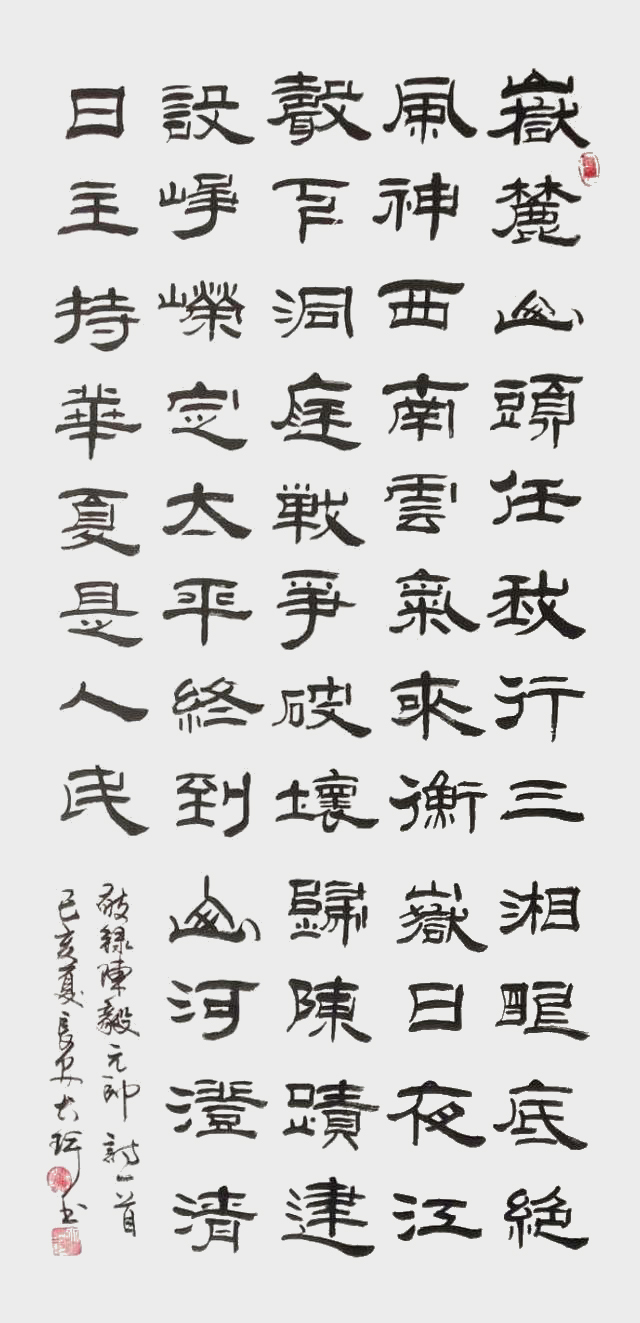 嶽麓山頭任我行三湘眼底絕
風神西南雲氣來衡嶽日夜江
聲下洞庭戰爭破壞歸陳蹟建
設崢嶸定太平終到山河澄清
日主持華夏是人民
敬錄陳毅元帥詩一首
己亥夏長安大书